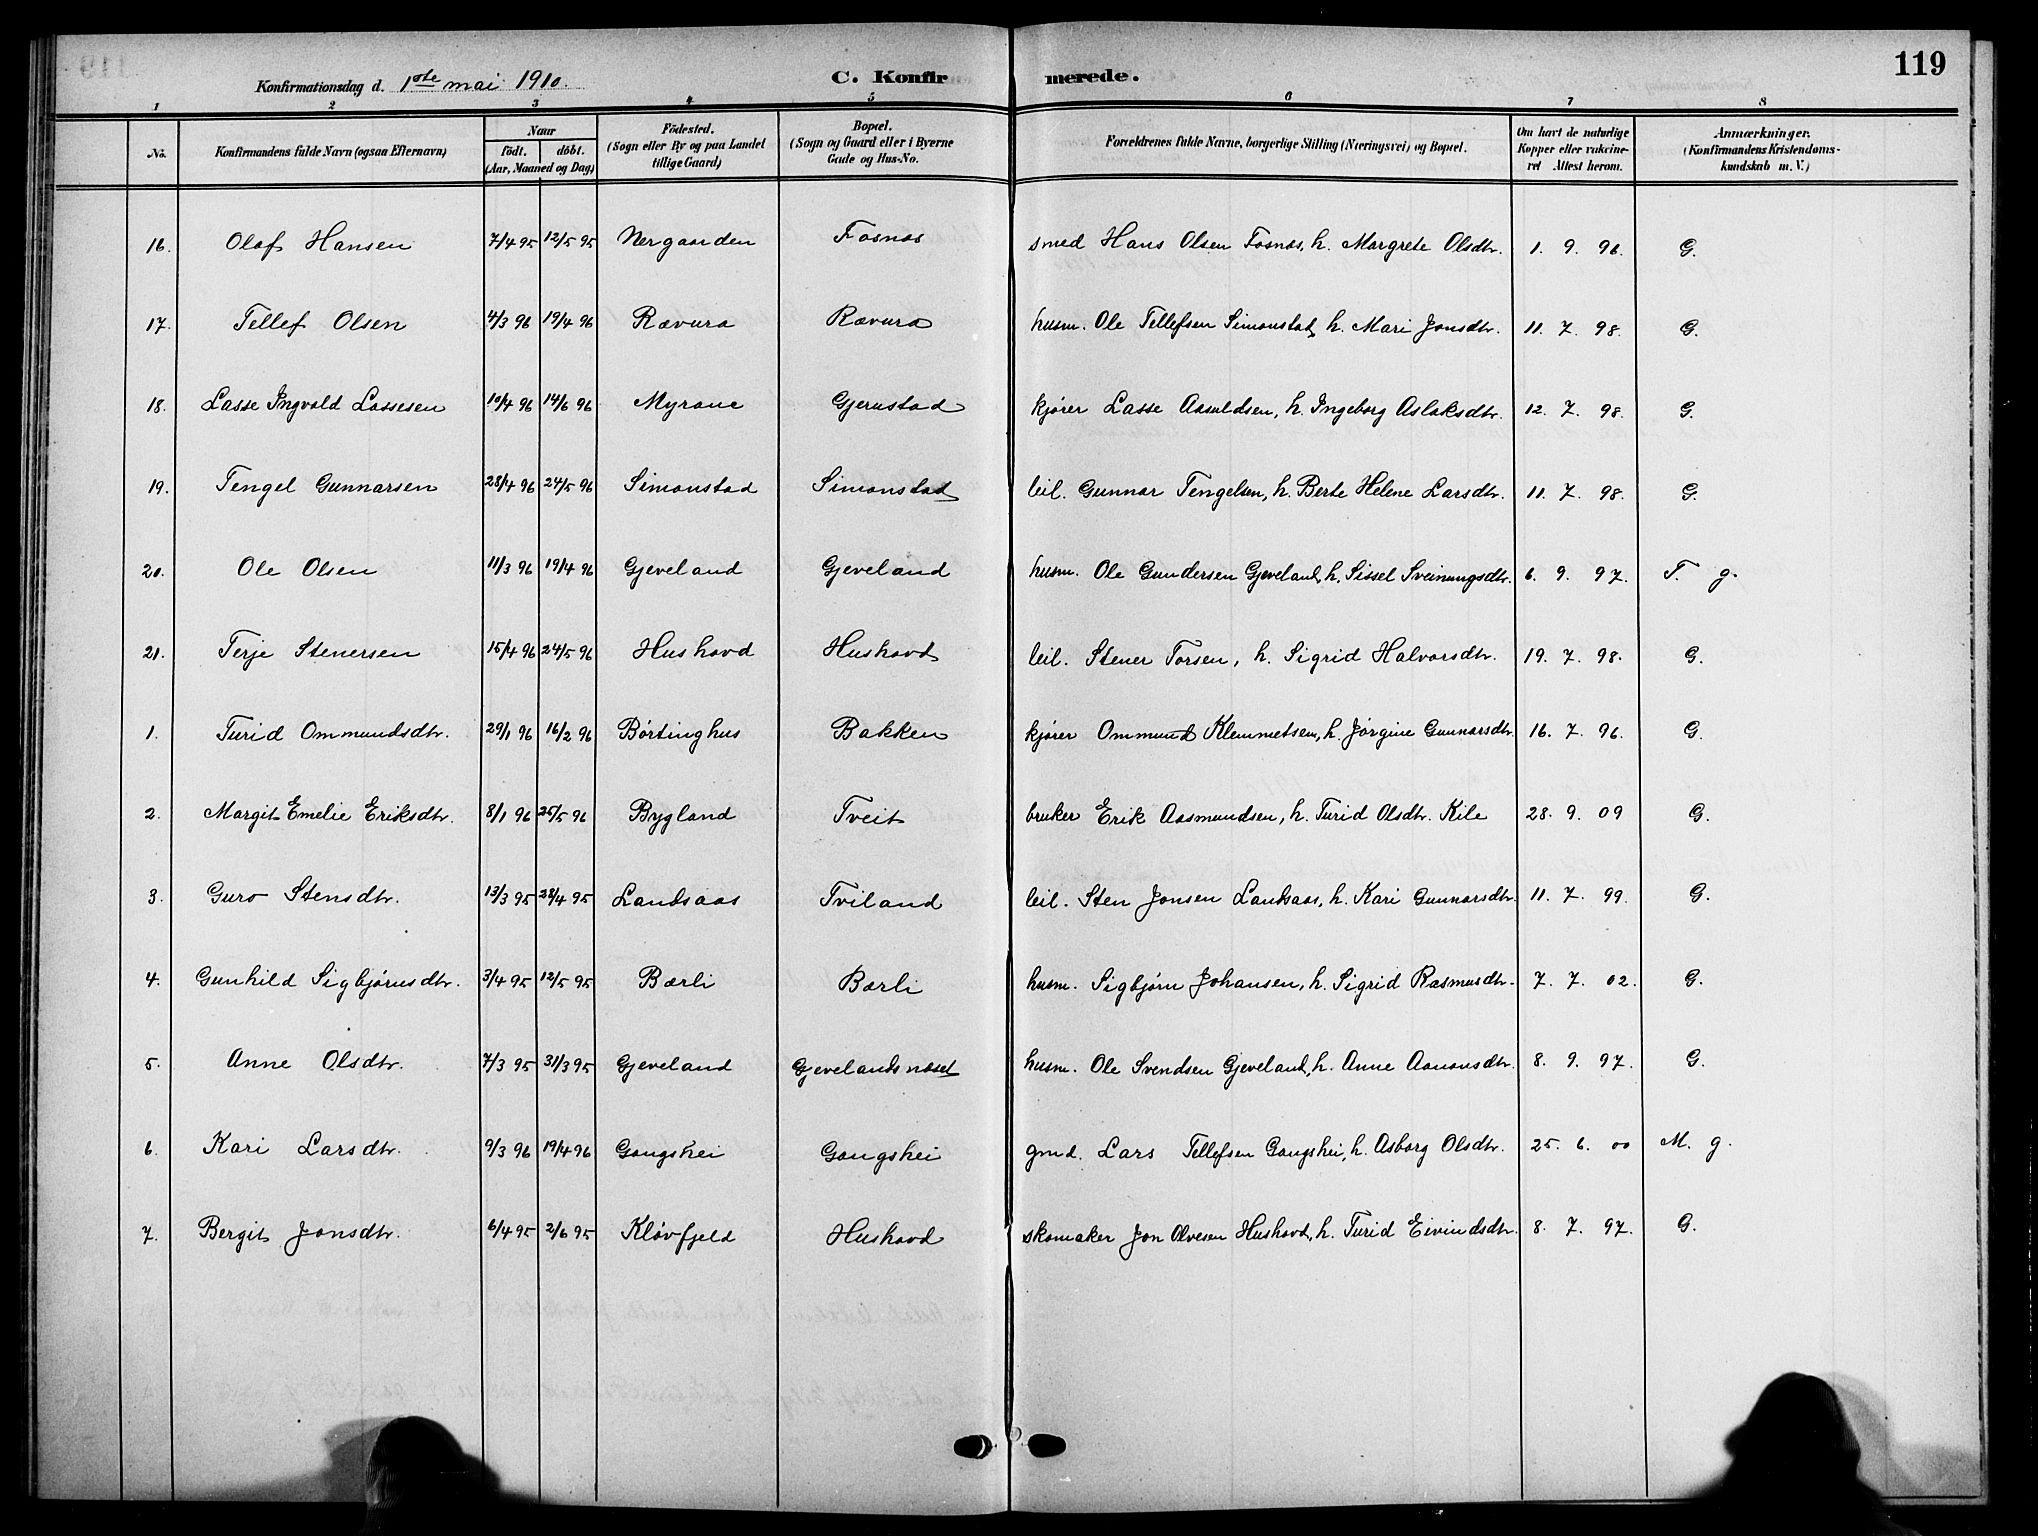 119
Konfirmationsdag d. 1ste mai 1910. C. Konfirmerede.
1 2 3 4 5 6 7 8
No. Konfirmandens fulde Navn (ogsaa Efternavn) Naar födt. döbt. (Aar, Maaned og Dag) Födested. (Sogn eller By og paa Landet tillige Gaard) Bopæl. (Sogn og Gaard eller i Byerne Gade og Hus-No. Forældrenes fulde Navne, borgerlige Stilling (Næringsvei) og Bopæl. Om havt de naturlige Kopper eller vakcineret Attest herom. Anmærkninger. (Konfirmandens Kristendomskundskab m. V.)
16. Olaf Hansen 7/4 95 12/5 95 Nergaarden Fosnas smed Hans Olsen Fosnas, h. Margrete Olsdtr. 1. 9. 96. G.
17. Tellef Olsen 4/3 96 19/4 96 Rævura Rævura husm. Ole Tellefsen Simonstad, h. Mari Jonsdtr. 11. 7. 98. G.
18. Lasse Ingvald Lassesen 10/4 96 14/6 96 Myrane Gjerustad kjører Lasse Aasuldsen, h. Ingeborg Aslaksdtr. 12. 7. 98. G.
19. Tengel Gunnarsen 28/4 96 24/5 96 Simonstad Simonstad leil. Gunnar Tengelsen, h. Berte Helene Larsdtr. 11. 7. 98. G.
20. Ole Olsen 11/3 96 19/4 96 Gjeveland Gjeveland husm. Ole Gundersen Gjeveland, h. Sissel Sveinungsdtr. 6. 9. 97. T. g.
21. Terje Stenersen 15/4 96 24/5 96 Hushovd Hushovd leil. Stener Torsen, h. Sigrid Halvorsdtr. 19. 7. 98. G.
1. Turid Ommundsdtr. 29/1 96 16/2 96 Børtinghus Bakken kjører Ommund Klemmetsen, h. Jørgine Gunnarsdtr. 16. 7. 96. G.
2. Margit Emelie Eriksdtr. 8/1 96 25/5 96 Bygland Tveit bruker Erik Aasmundsen, h. Turid Olsdtr. Kile 28. 9. 09 G.
3. Guro Stensdtr. 13/3 95 28/4 95 Landsaas Tviland leil. Sten Jonsen Landsaas, h. Kari Gunnarsdtr. 11. 7. 99. G.
4. Gunhild Sigbjørnsdtr. 3/4 95 12/5 95 Bærli Bærli husm. Sigbjørn Johansen, h. Sigrid Rasmusdtr. 7. 7. 02. G.
5. Anne Olsdtr. 7/3 95 31/3 95 Gjeveland Gjevelandsnæset husm. Ole Svendsen Gjeveland, h. Anne Aanonsdtr. 8. 9. 97. G.
6. Kari Larsdtr. 9/3 96 19/4 96 Gangshei Gangshei gmd. Lars Tellefsen Gangshei, h. Asborg Olsdtr. 25. 6. 00 M. g.
7. Bergit Jonsdtr. 6/4 95 2/6 95 Kløvfjeld Hushovd skomaker Jon Olvesen Hushovd, h. Turid Eivindsdtr. 8. 7. 97. G.